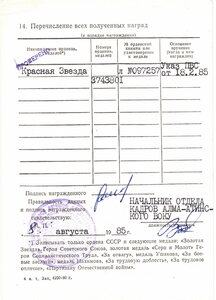 14. Перечисление всех полученных наград
(в порядке награждения)
Наименование ордена, медали
Номера ордена, медали
№ орденской книжки или удостоверения к медали
Основание вручения (Указ, дата)
ПРОВЕРЕНО
Красная Звезда
3743801
Л №097257
Указ ПВС от 18.2.85
Подпись награжденного
Правильность данных и подпись награжденного свидетельствую:
НАЧАЛЬНИК ОТДЕЛА КАДРОВ АЛМА-АТИНСКОГО ВОКУ
августа 1985г.
*) Записывать только ордена СССР и следующие медали: «Золотая Звезда» Героя Советского Союза, медаль «Серп и Молот» Героя Социалистического Труда, «За отвагу», медаль Ушакова, «За боевые заслуги», медаль Нахимова, «За трудовую доблесть», «За трудовое отличие», «Партизану Отечественной войны».